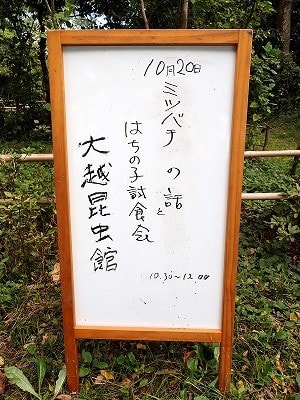 10月20日
ミツバチの話
と
はちの子試食会
大越昆虫館
10.30〜12.00